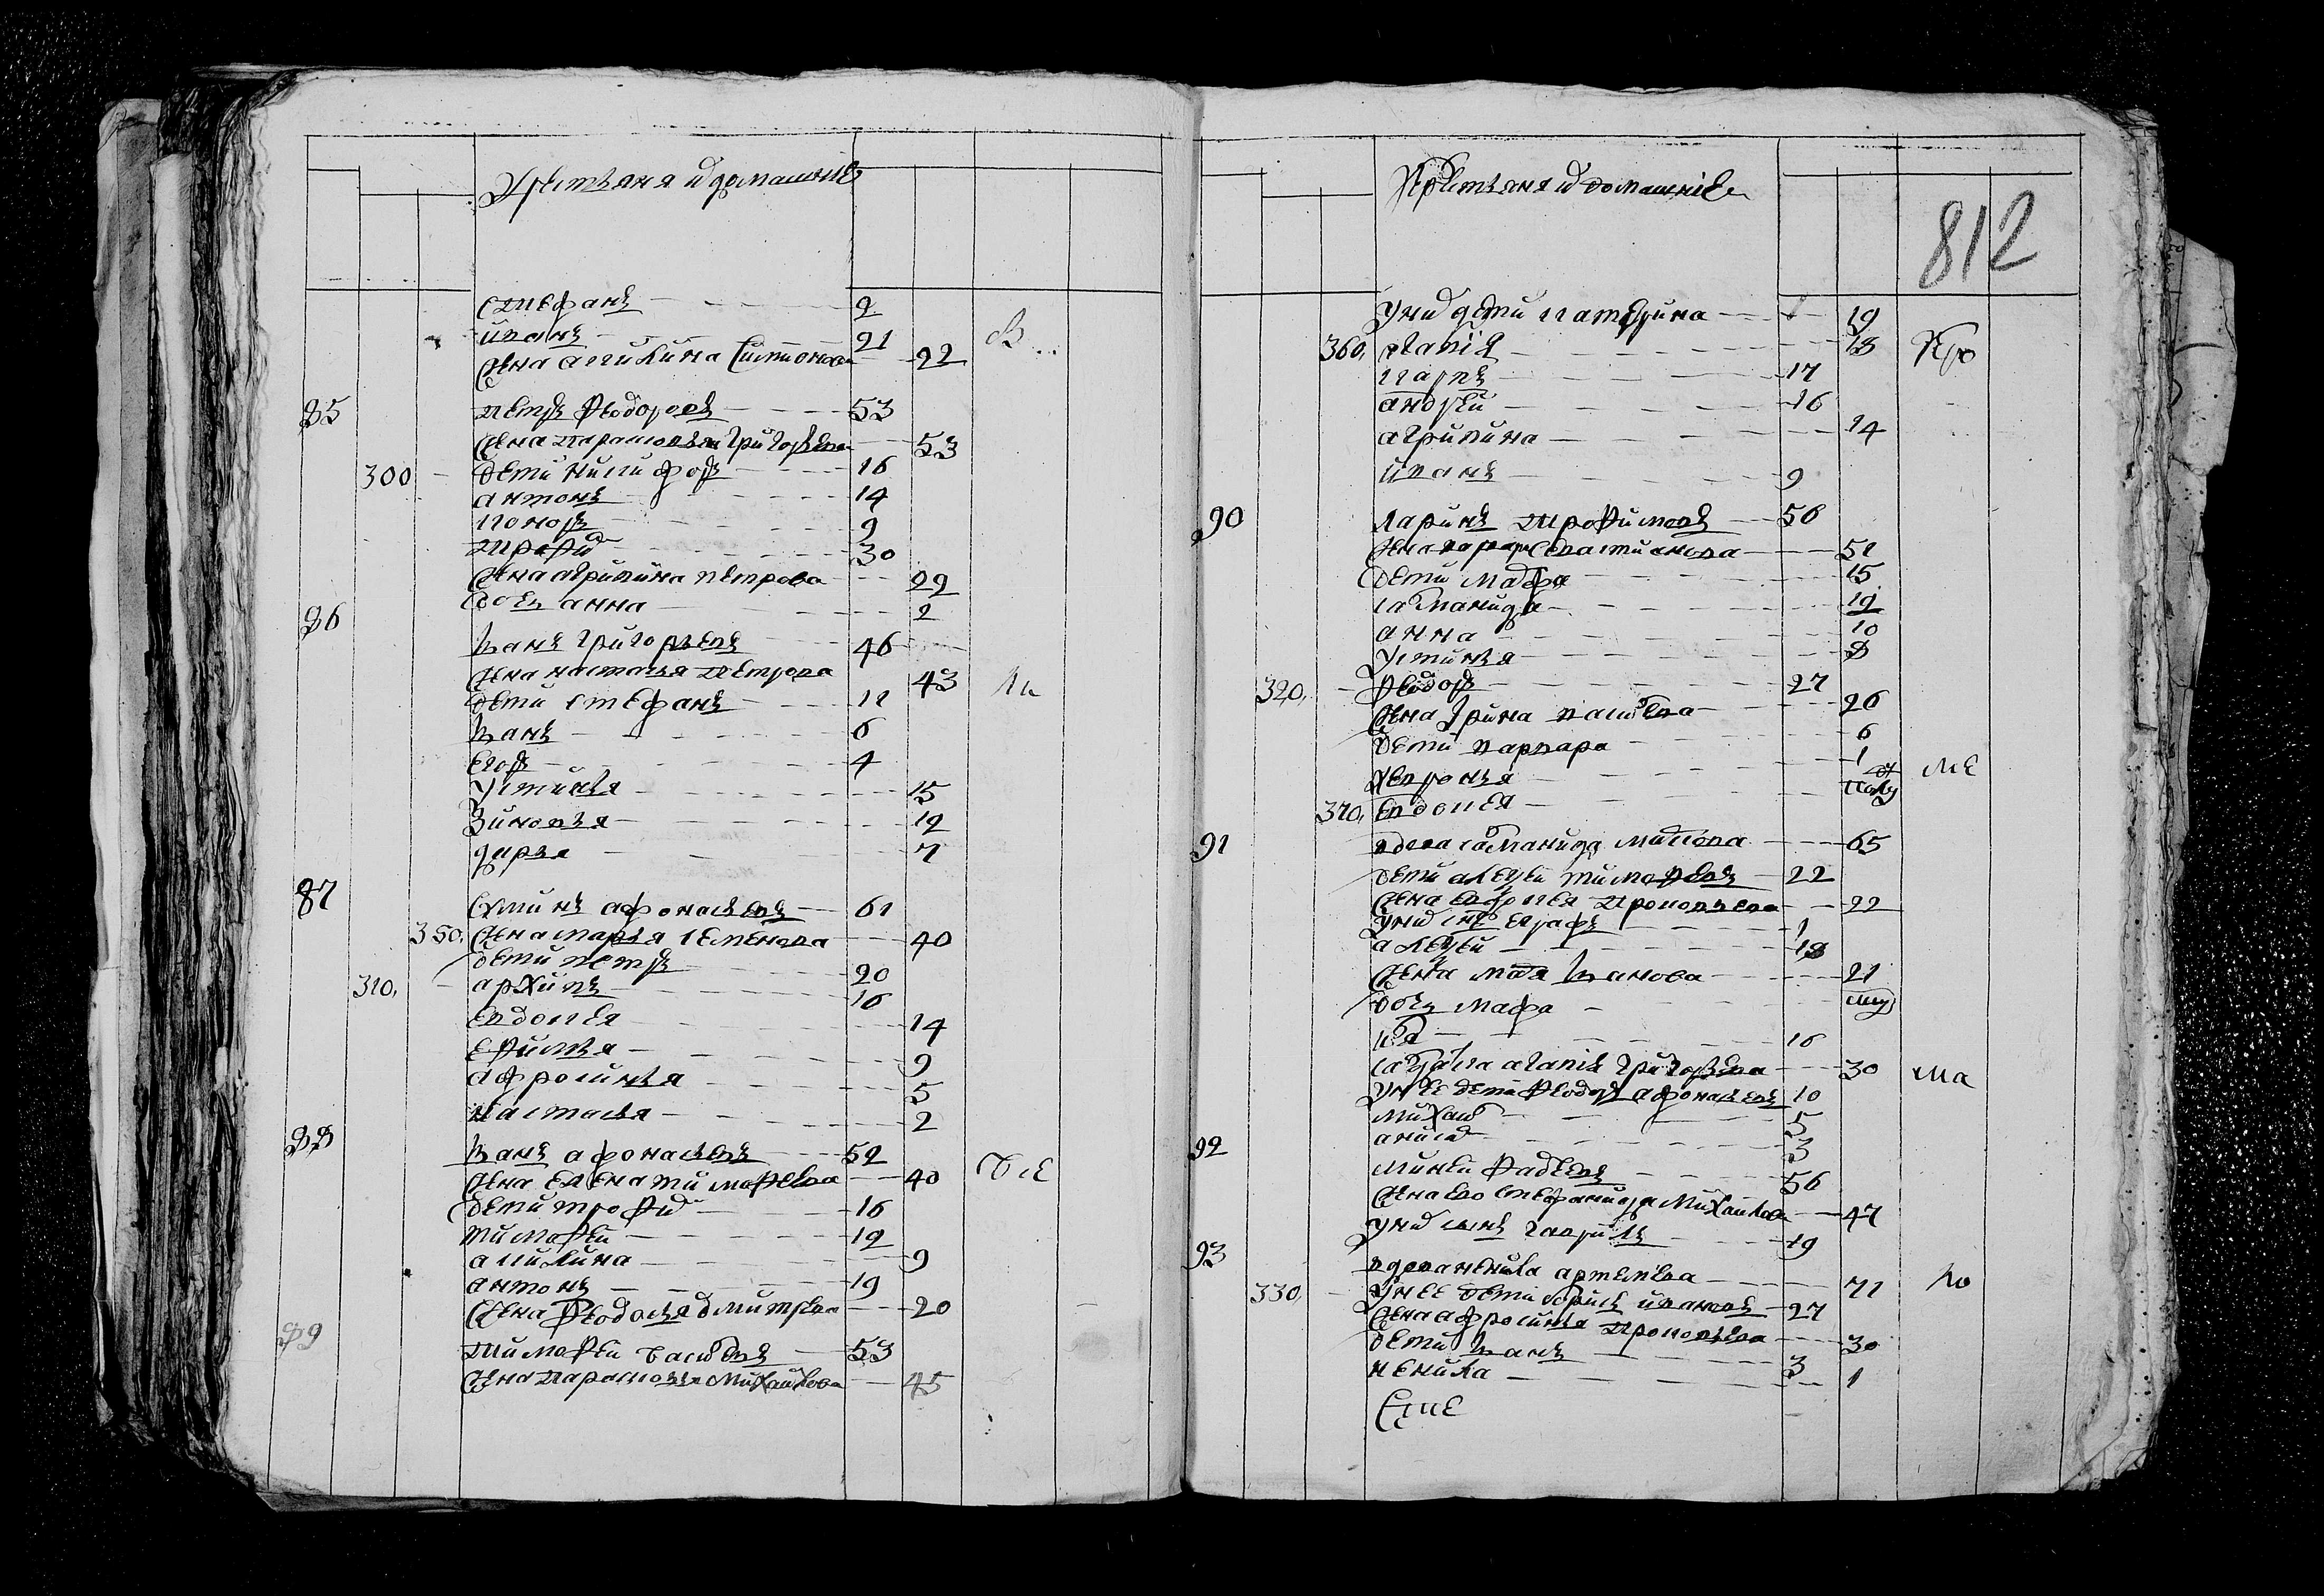 крестьяня и домашние
стефанъ 9
иванъ 21
жена акилина симионова 22
В
85 петръ феодоровъ 53
жена парасковья григорьева 53
300 дети никифоръ 16
антонъ 14
кононъ 9
трофи 30
жена агрипина петрова 22
дочь анна 2
86
иванъ григорьевъ 46
жена настасья петрова 43
ли
дети стефанъ 11
иванъ 6
егоръ 4
устинья 15
зиновья 12
дарья 7
87
устинъ афонасьевъ 61
350 жена марья семенова 40
дети петръ 20
310 архипъ 16
евдокея 14
ефимья 9
афросинья 5
настасья 2
88
иванъ афонасьевъ 52
жена елена тимофеева 40
все
дети трофи 16
тимофей 12
акилина 9
антонъ 19
жена феодосья дмитрева 20
89
тимофей васильевъ 53
жена парасковья михайлова 45
крестьяня и домашние
812
у них дети катерина 19
360 агапия 18
про
карпъ 17
андрей 16
агрипина 14
иванъ 9
90 ларинъ трофимовъ 56
жена севастианова 51
дети марфа 15
саламанида 12
анна 10
устинья 8
320 феодоръ 27
жена ирина васильева 26
дети варвара 6
хевронья 1
ме
370 евдокея полу
91 вдова саламанида маткова 65
дети алексей тимофеевъ 22
жена евдокея прокопьева 22
у них снъ евграфъ 1
алексей 18
жена марья иванова 21
дочь марфа
илья 16
агапия григорьева 30
ма
у нее дети феодоръ афонасьевъ 10
михаил 5
анисим 3
92
миней фадеевъ 56
жена ево стефанида михайлова 47
у них сынъ гаврилъ 19
93
вдова ненила артемева 71
ло
330 у нее дети борисъ ивановъ 27
жена афросинья прокопьева 30
дети иванъ 3
ненила 1
Еще